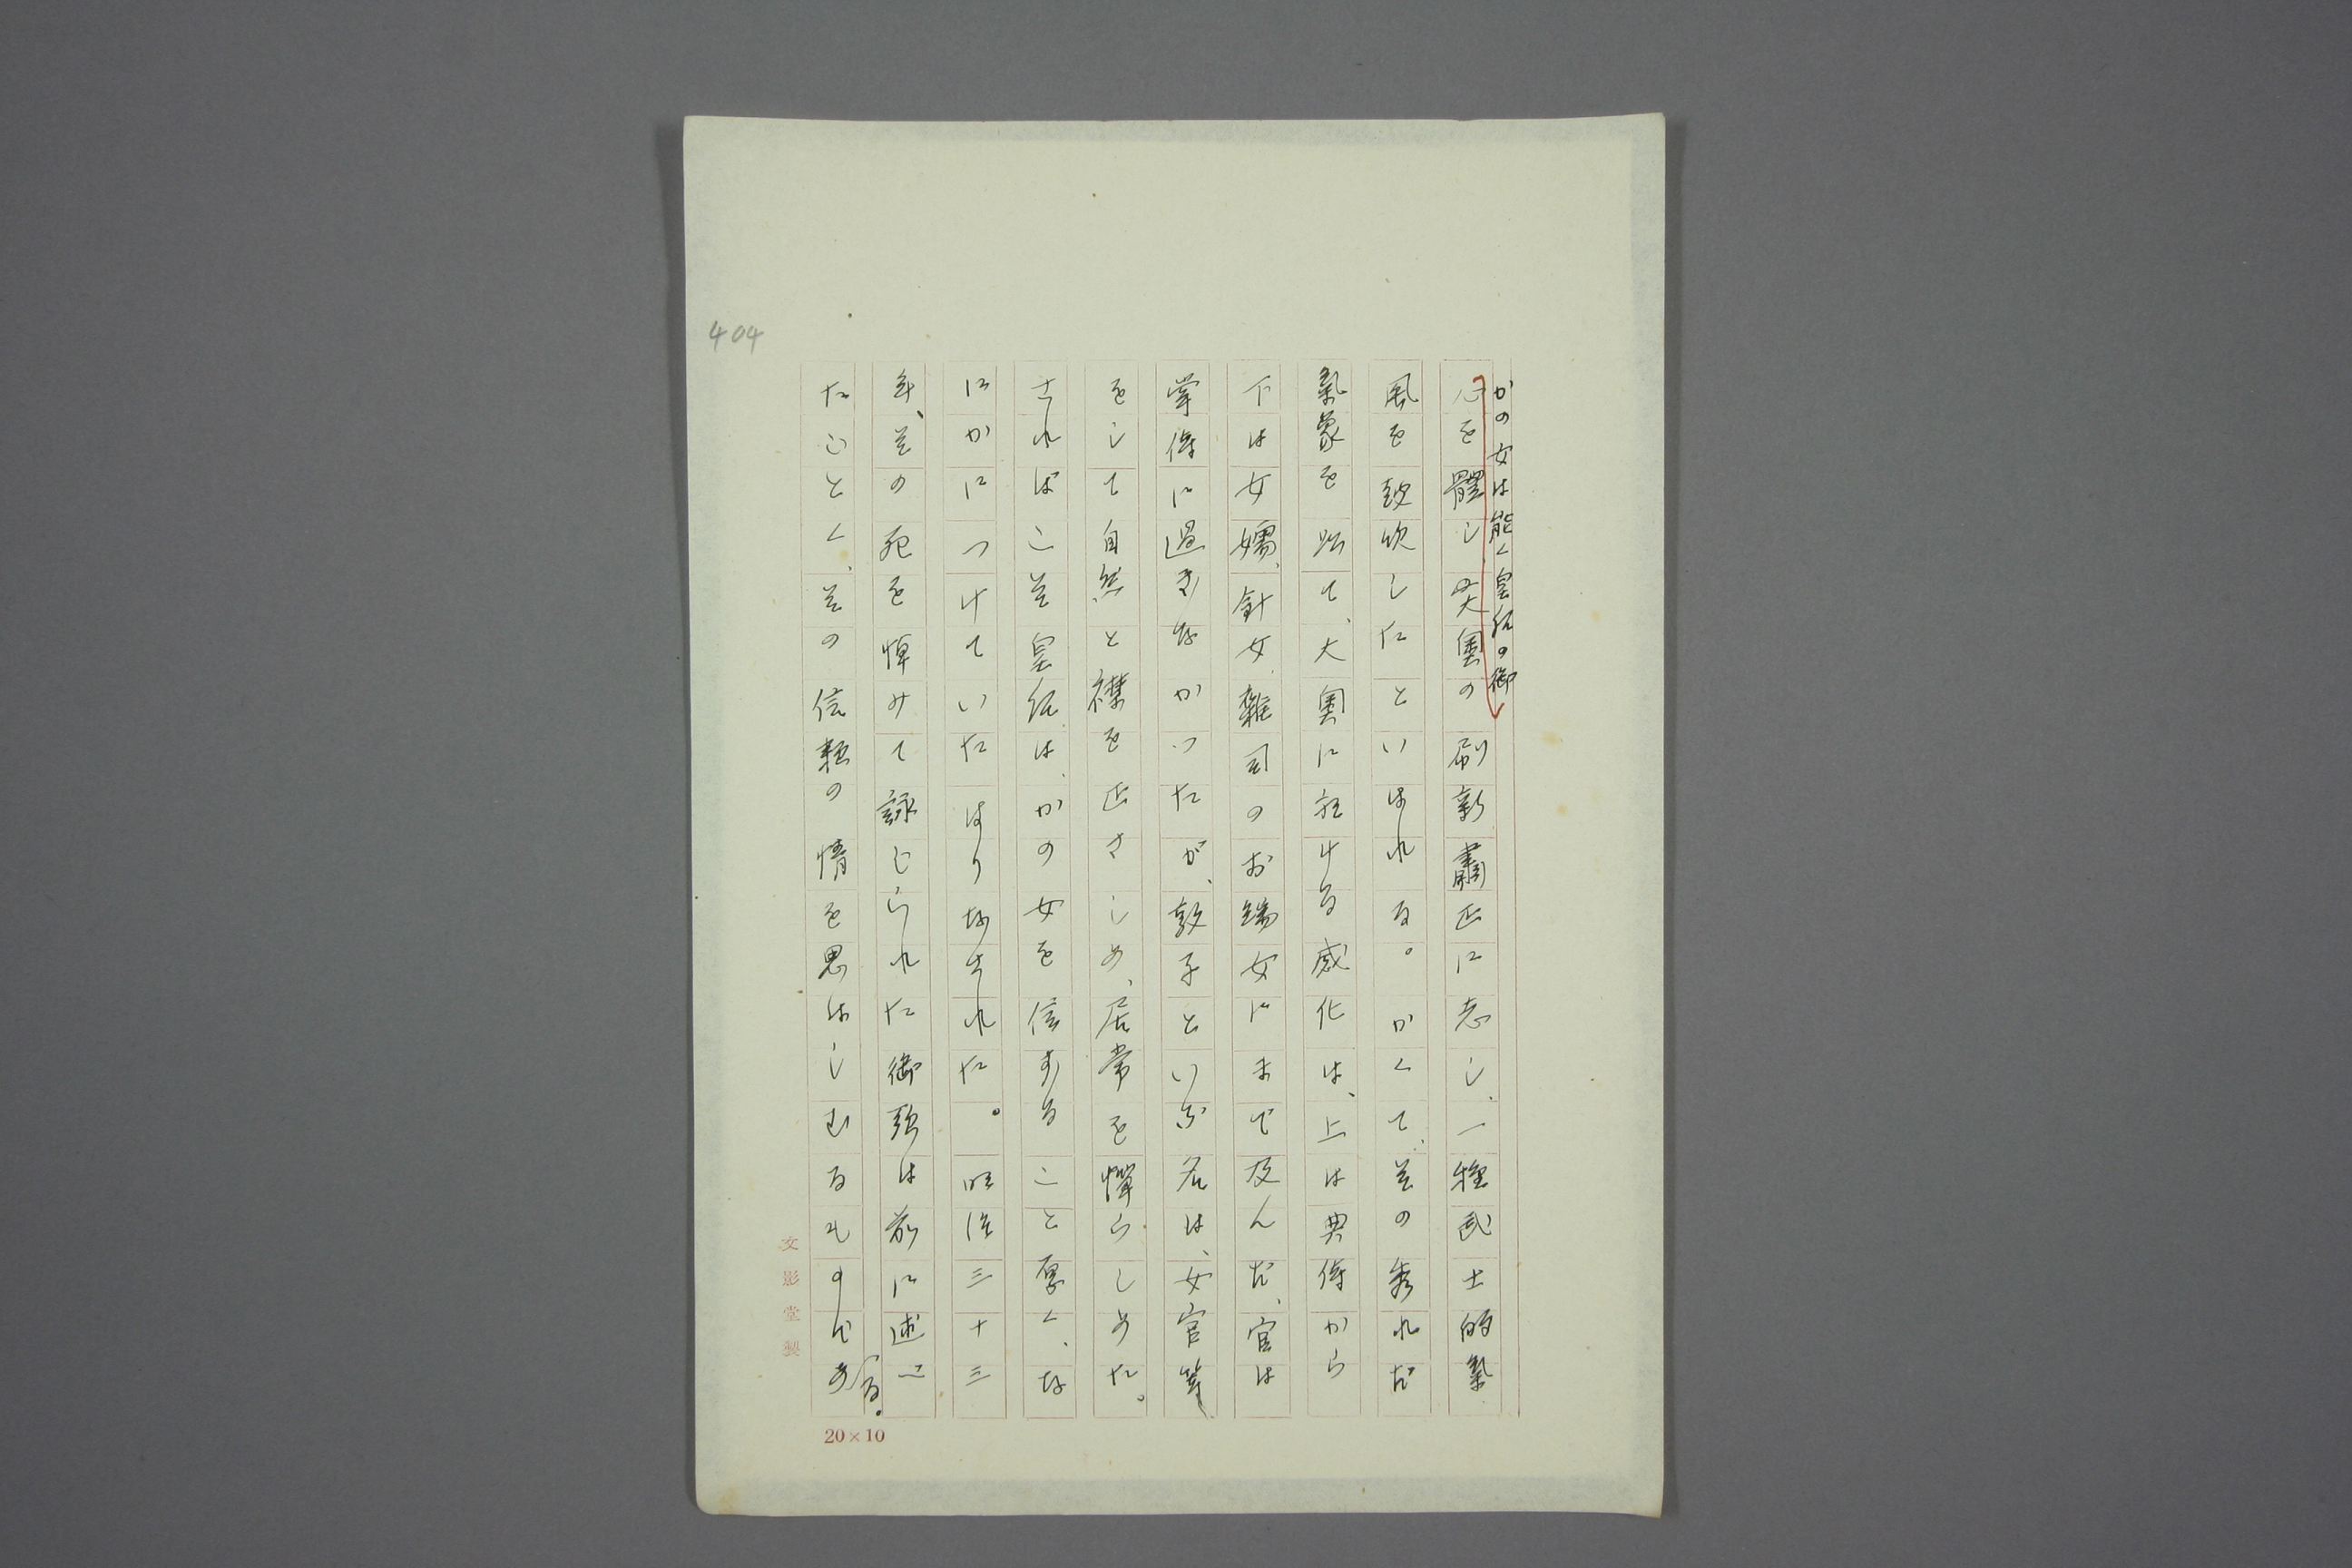 かの女は能く皇后の御
心を體し、大奥の刷新肅正に志し、一種武士的氣
風を鼓吹したといはれる。かくて、其の秀れた
氣象を以て、大奥に於ける感化は、上は典侍から
下は女嬬、針女、雜司のお端女にまで及んだ、官は
掌侍に過ぎなかつたが、敦子といふ名は、女官等
をして自然と襟を正さしめ、居常を憚らしめた。
さればこそ皇后は、かの女を信ずること厚く、な
にかにつけていたはりなされた。明治三十三
年、其の死を悼みて詠じられた御歌は前に述べ
たごとく、其の信頼の情を思はしむるものである。
404
文影堂製
20×10